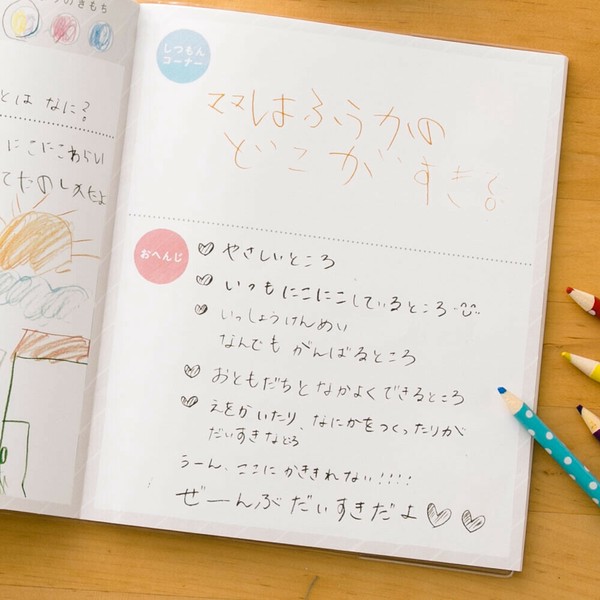 のきもち
とは なに?
にこにこわらい
てたのしえたよ
しつもん
コーナー
ママはふうかの
どこがすき?
おへんじ
やさしいところ
いつもにこにこしているところ
いっしょうけんめい
なんでも がんばるところ
おともだちとなかよくできるところ
えをかいたり、なにかをつくったりが
だいすきなとろ
うーん、ここにかききれない!!!!
ぜーんぶだいすきだよ